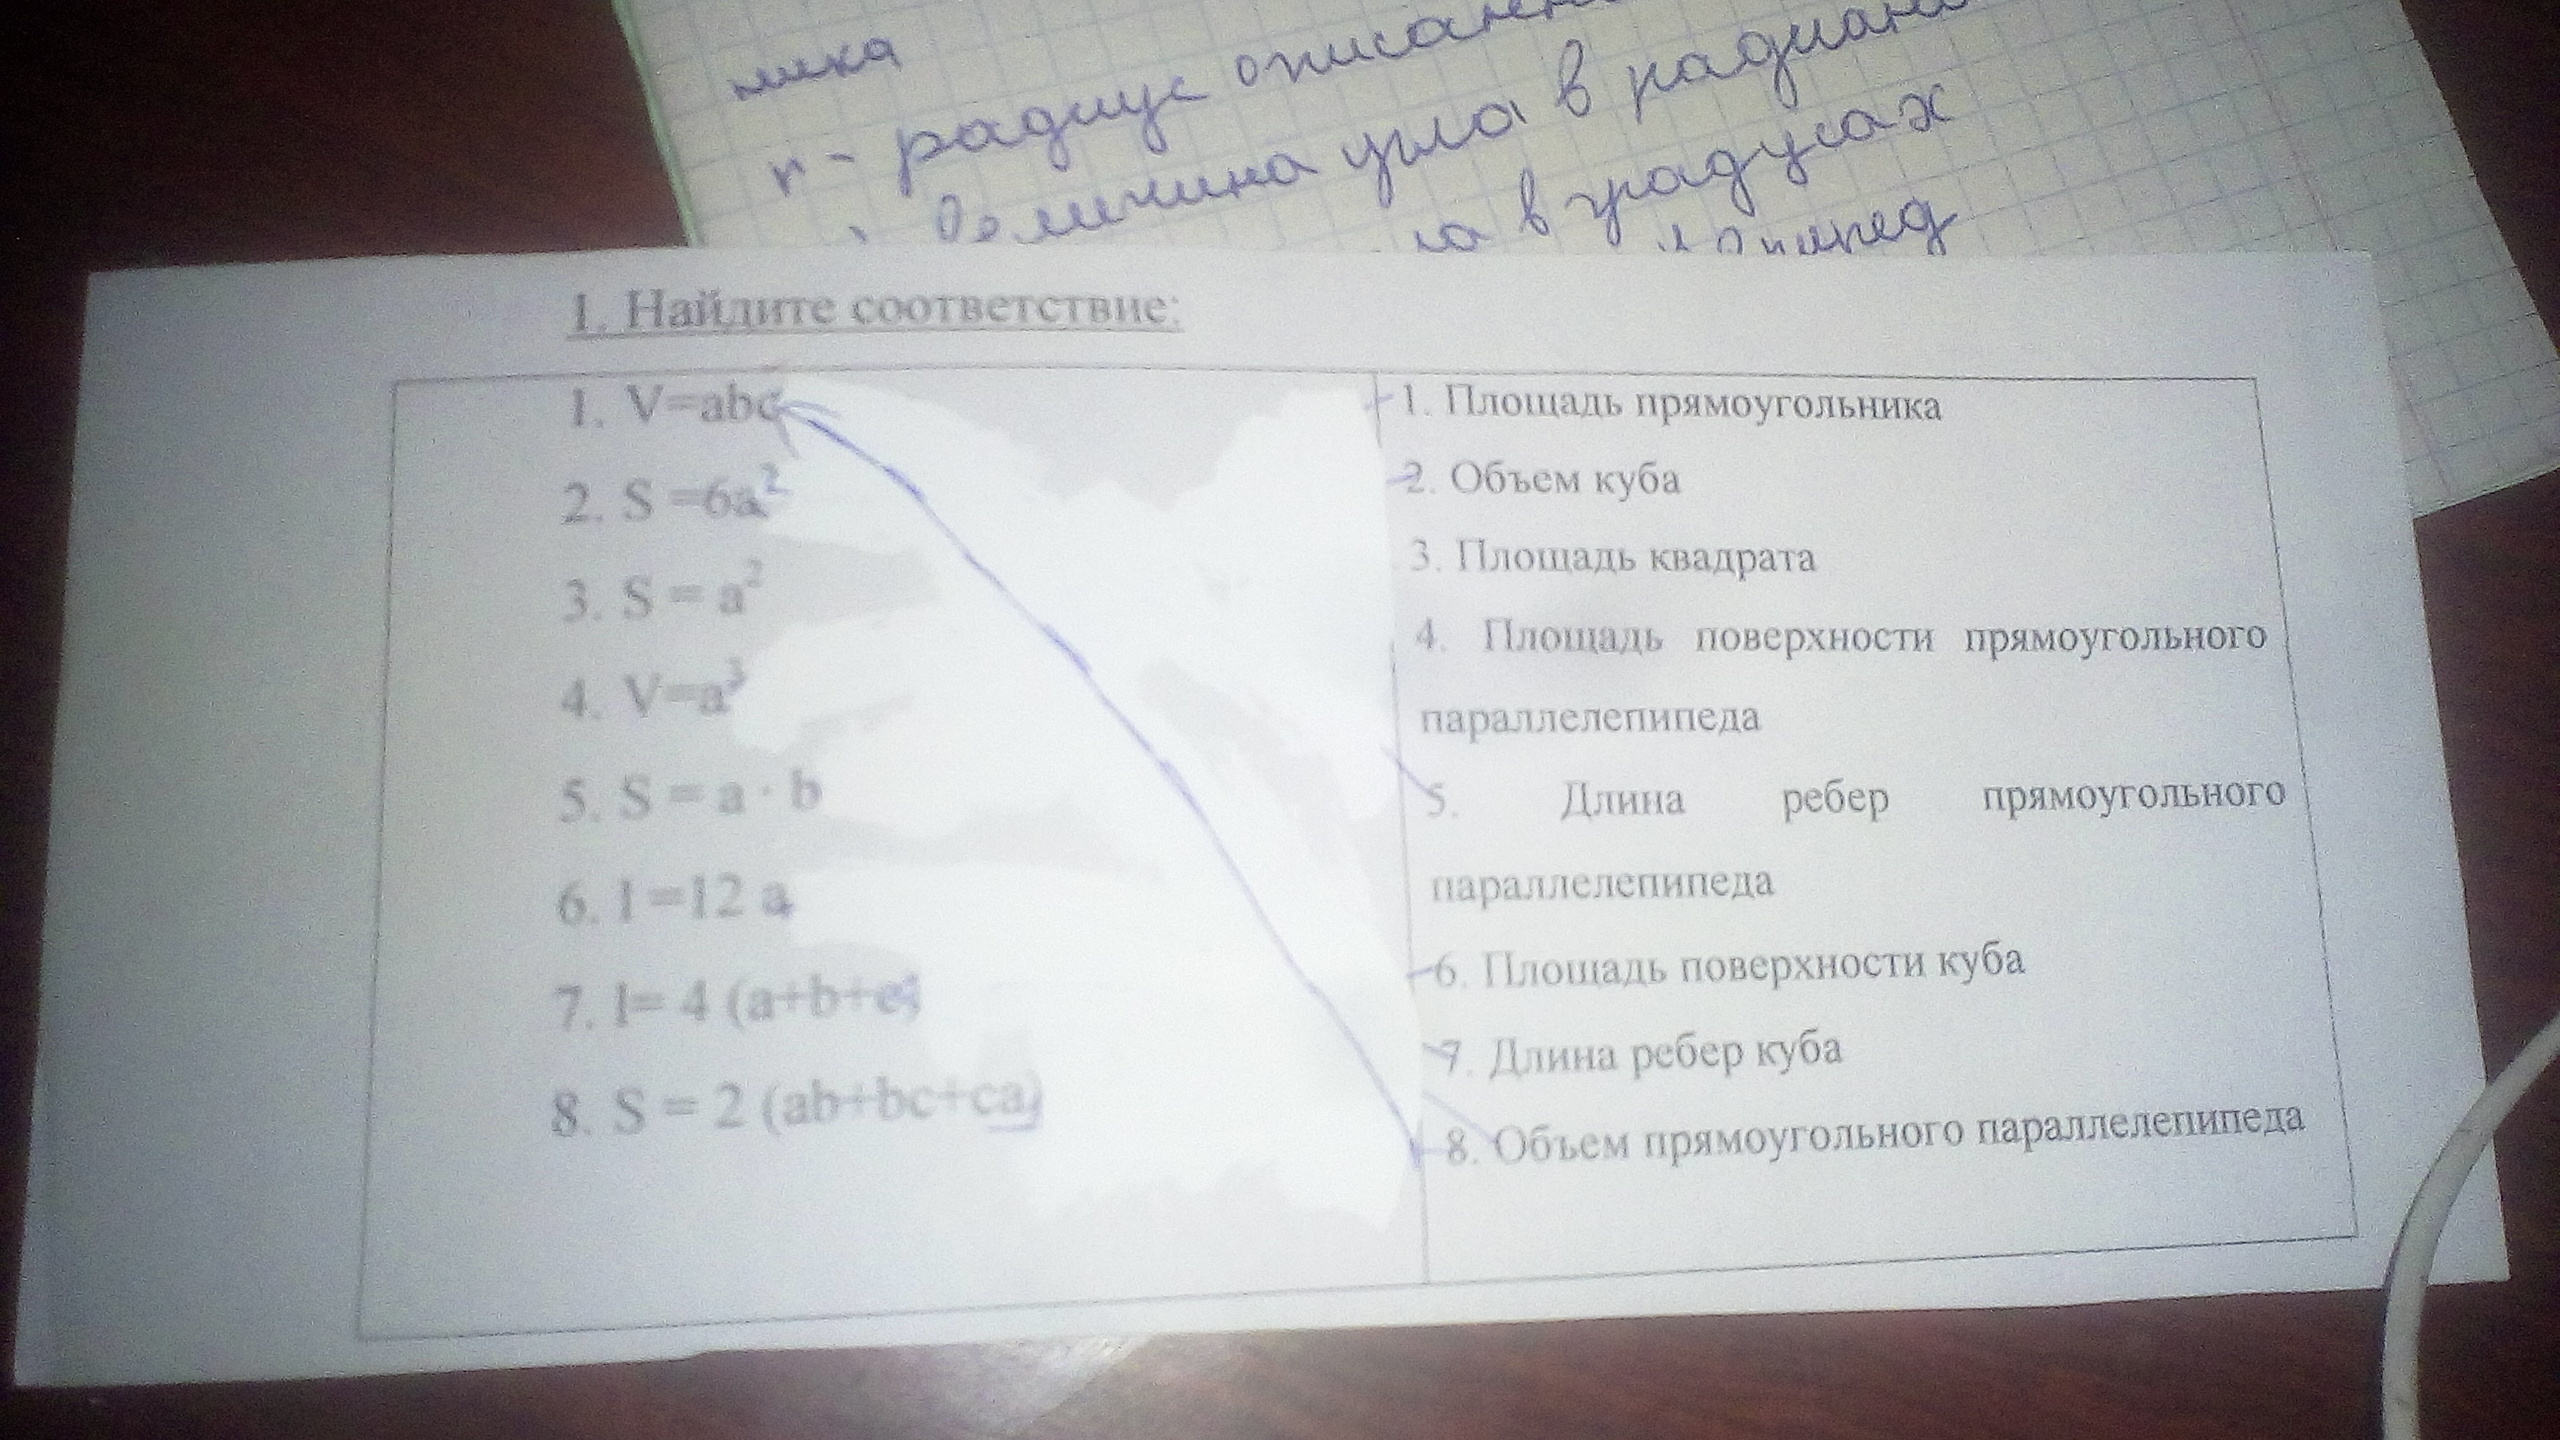 ника
r - радиус описанн
величина угла в радиан
в градусах
1. Найдите соответствие:
1. V=abc
2. S =6a²
3. S = a²
4. V=a³
5. S = a · b
6. l =12 a
7. l= 4 (a+b+c)
8. S = 2 (ab+bc+ca)
1. Площадь прямоугольника
2. Объем куба
3. Площадь квадрата
4. Площадь поверхности прямоугольного
параллелепипеда
5. Длина ребер прямоугольного
параллелепипеда
6. Площадь поверхности куба
7. Длина ребер куба
8. Объем прямоугольного параллелепипеда